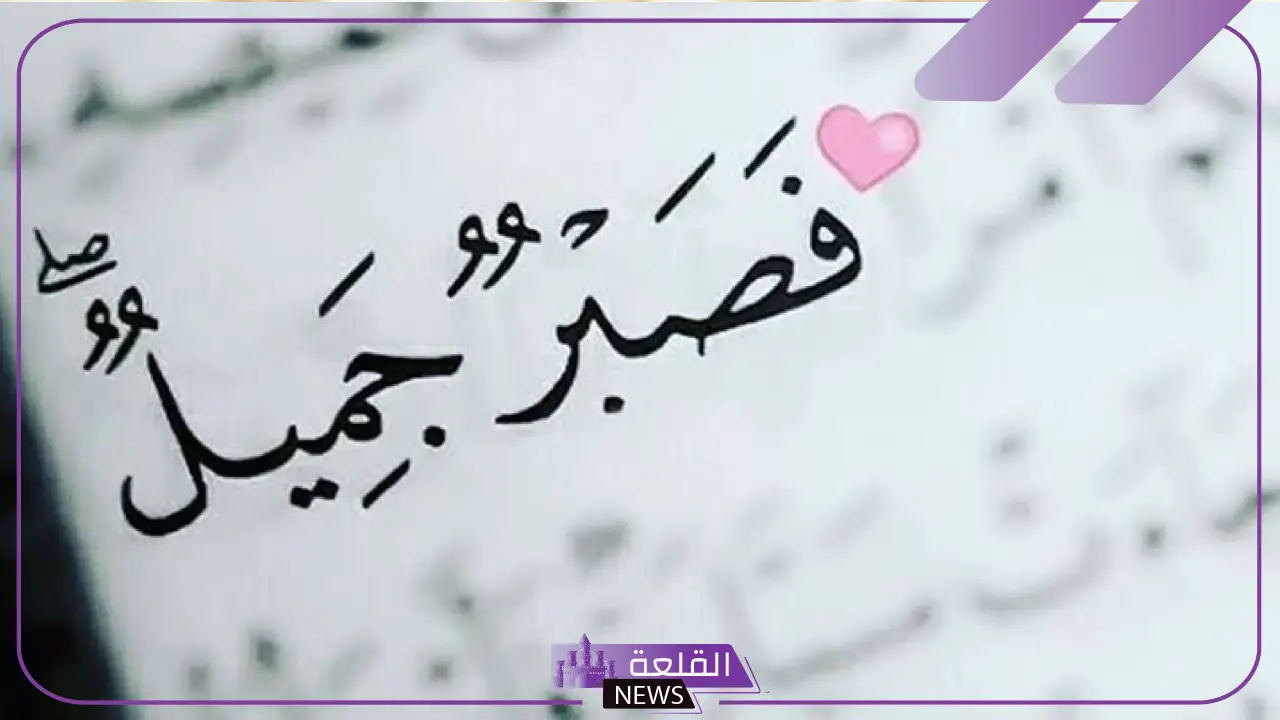 فَصَبْرٌ جَمِيلٌ ۖ
القلعة
NEWS